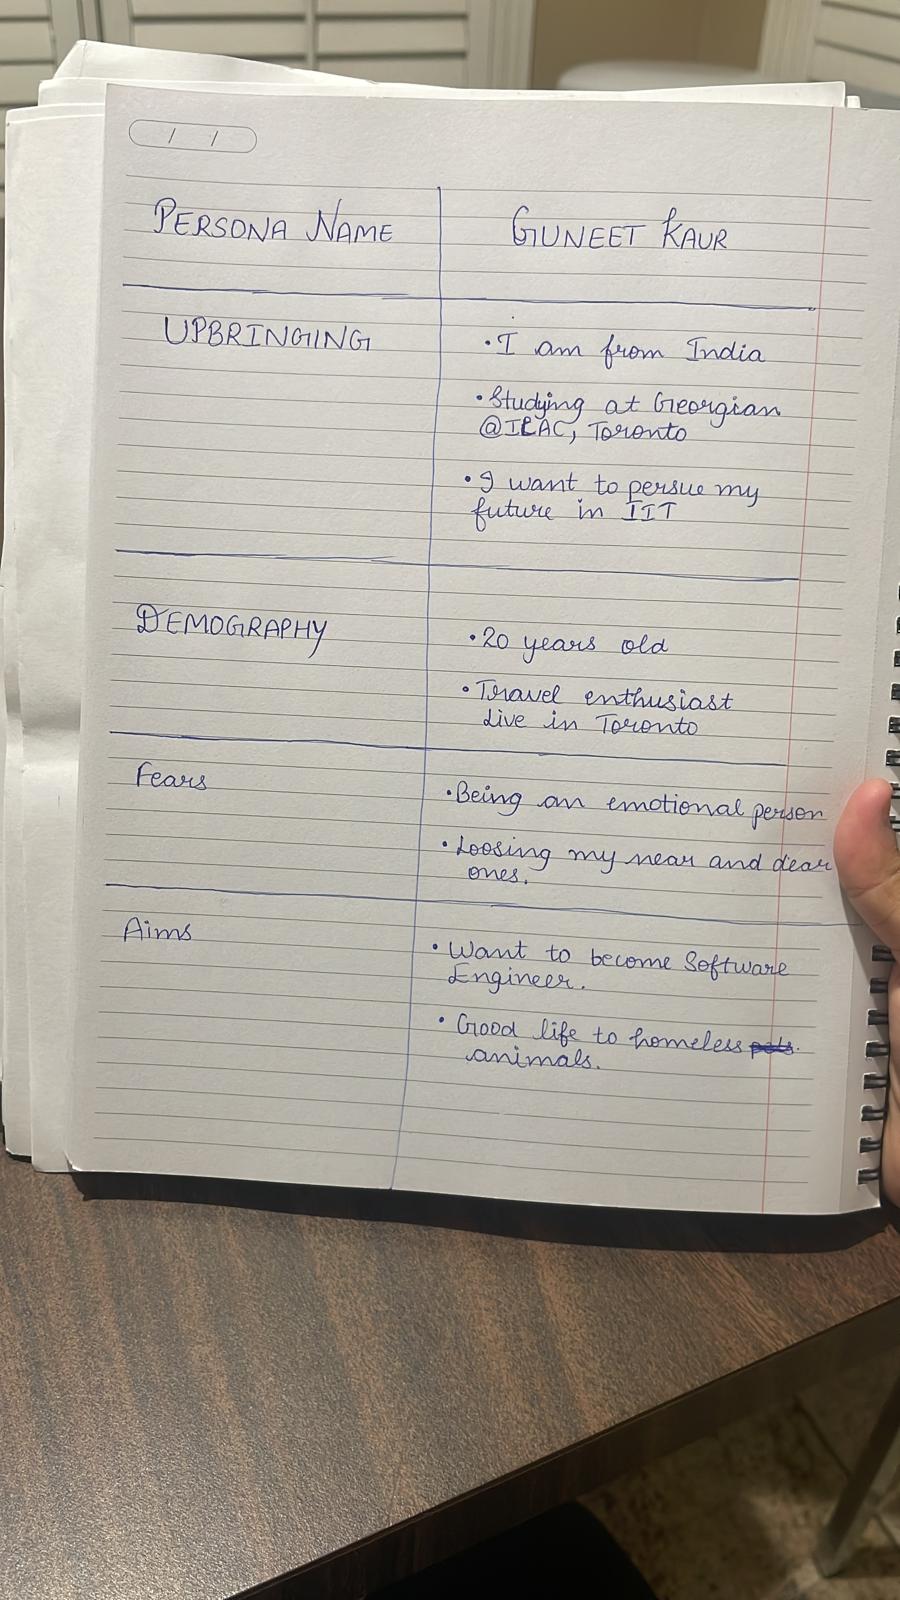 / /
PERSONA NAME
GUNEET KAUR
UPBRINGING
• I am from India
• Studying at Georgian
@ILAC, Toronto
• I want to persue my
future in IIT
DEMOGRAPHY
• 20 years old
• Travel enthusiast
Live in Toronto
Fears
• Being an emotional person
• Loosing my near and dear
ones.
Aims
• Want to become Software
Engineer.
• Good life to homeless
animals.